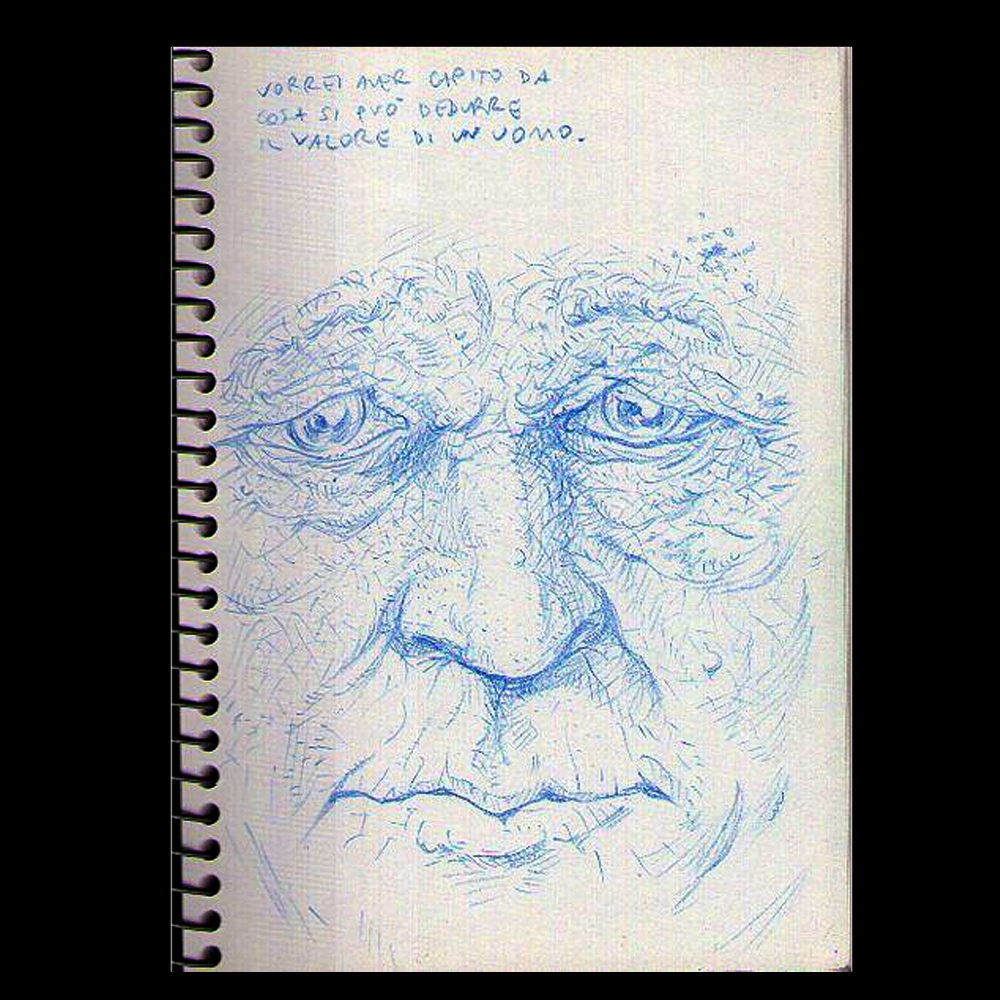 VORREI AVER CAPITO DA
COSA SI PUÒ DEDURRE
IL VALORE DI UN UOMO.